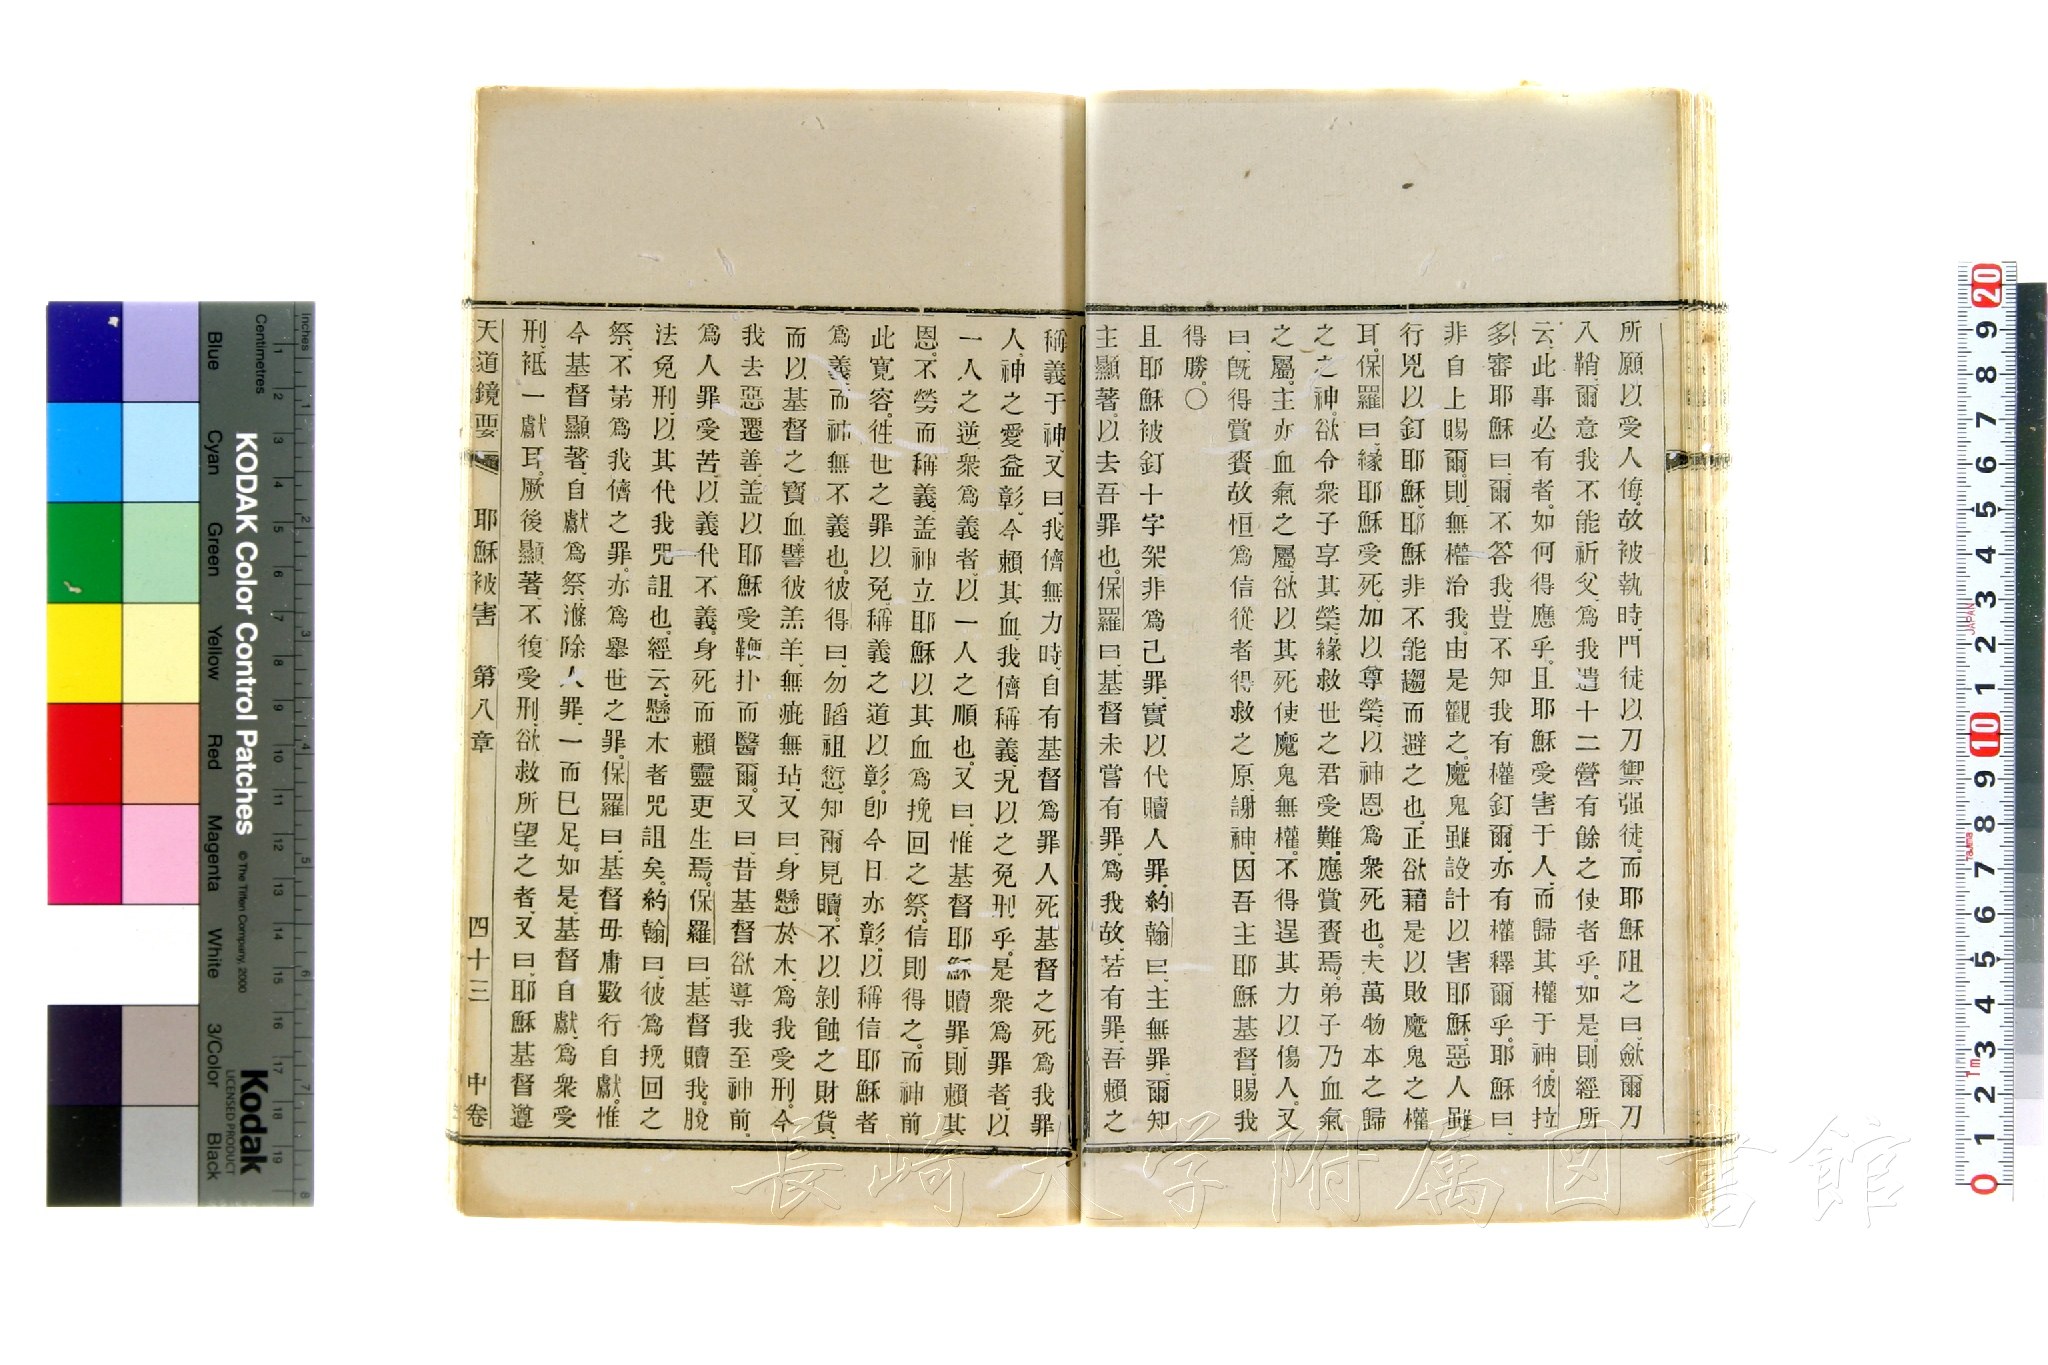 所願以受人侮、故被執時、門徒以刀禦强徒。而耶穌阻之曰、歛爾刀
入鞘、爾意我不能祈父、爲我遣十二營有餘之使者乎。如是、則經所
云、此事必有者。如何得應乎。且耶穌受害于人、而歸其權于神。彼拉
多審耶穌曰、爾不答我、豈不知我有權釘爾、亦有權釋爾乎。耶穌曰、
非自上賜爾、則無權治我。由是觀之、魔鬼雖設計以害耶穌。惡人雖
行兇以釘耶穌。耶穌非不能趨而避之也。正欲藉是以敗魔鬼之權
耳。保羅曰、緣耶穌受死、加以尊榮、以神恩爲衆死也。夫萬物本之歸
之之神、欲令衆子享其榮、緣救世之君受難、應賞賚焉。弟子乃血氣
之屬、主亦血氣之屬、欲以其死使魔鬼無權、不得逞其力以傷人。又
曰、旣得賞賚、故恒爲信從者得救之原、謝神、因吾主耶穌基督賜我
得勝。〇
且耶穌被釘十字架、非爲己罪、實以代贖人罪。約翰曰、主無罪、爾知
主顯著、以去吾罪也。保羅曰、基督未嘗有罪、爲我故、若有罪、吾賴之
稱義于神、又曰、我儕無力時、自有基督爲罪人死、基督之死爲我罪
人、神之愛益彰、今賴其血、我儕稱義、况以之免刑乎。是衆爲罪者、以
一人之逆、衆爲義者、以一人之順也。又曰、惟基督耶穌贖罪、則賴其
恩、不勞而稱義、盖神立耶穌、以其血爲挽回之祭、信則得之。而神前
此寬容、徃世之罪以免、稱義之道以彰、卽今日亦彰、以稱信耶穌者
爲義、而神無不義也。彼得曰、勿蹈祖愆、知爾見贖、不以剝蝕之財貨、
而以基督之寶血。譬彼羔羊、無疵無玷、又曰、身懸於木、爲我受刑。令
我去惡遷善、盖以耶穌受鞭扑而醫爾。又曰、昔基督欲導我至神前、
爲人罪受苦、以義代不義。身死而賴靈更生焉。保羅曰、基督贖我、脫
法免刑、以其代我咒詛也。經云、懸木者咒詛矣。約翰曰、彼爲挽回之
祭、不第爲我儕之罪、亦爲擧世之罪。保羅曰、基督毋庸數行自獻。惟
今基督顯著、自獻爲祭、滌除人罪、一而已足。如是、基督自獻、爲衆受
刑、祗一獻耳。厥後顯著、不復受刑、欲救所望之者、又曰、耶穌基督遵
天道鏡要 耶穌被害 第八章 四十三 中卷
長崎大学附属図書館
KODAK Color Control Patches © The Tiffen Company, 2000
Kodak LICENSED PRODUCT
Inches
Centimetres
Blue
Cyan
Green
Yellow
Red
Magenta
White
3/Color
Black